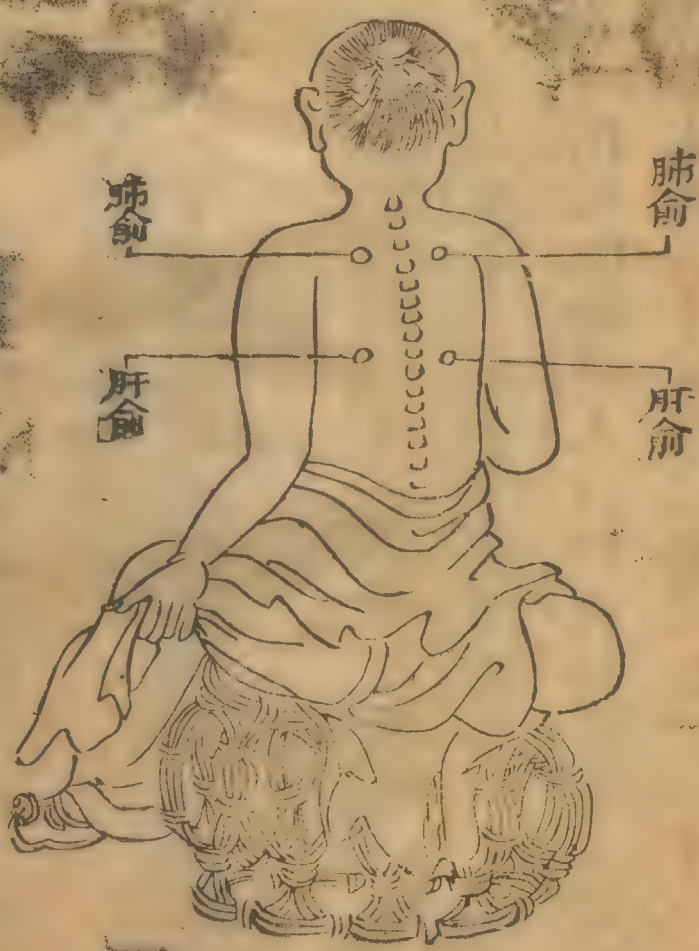 肺俞
肺俞
肝俞
肝俞